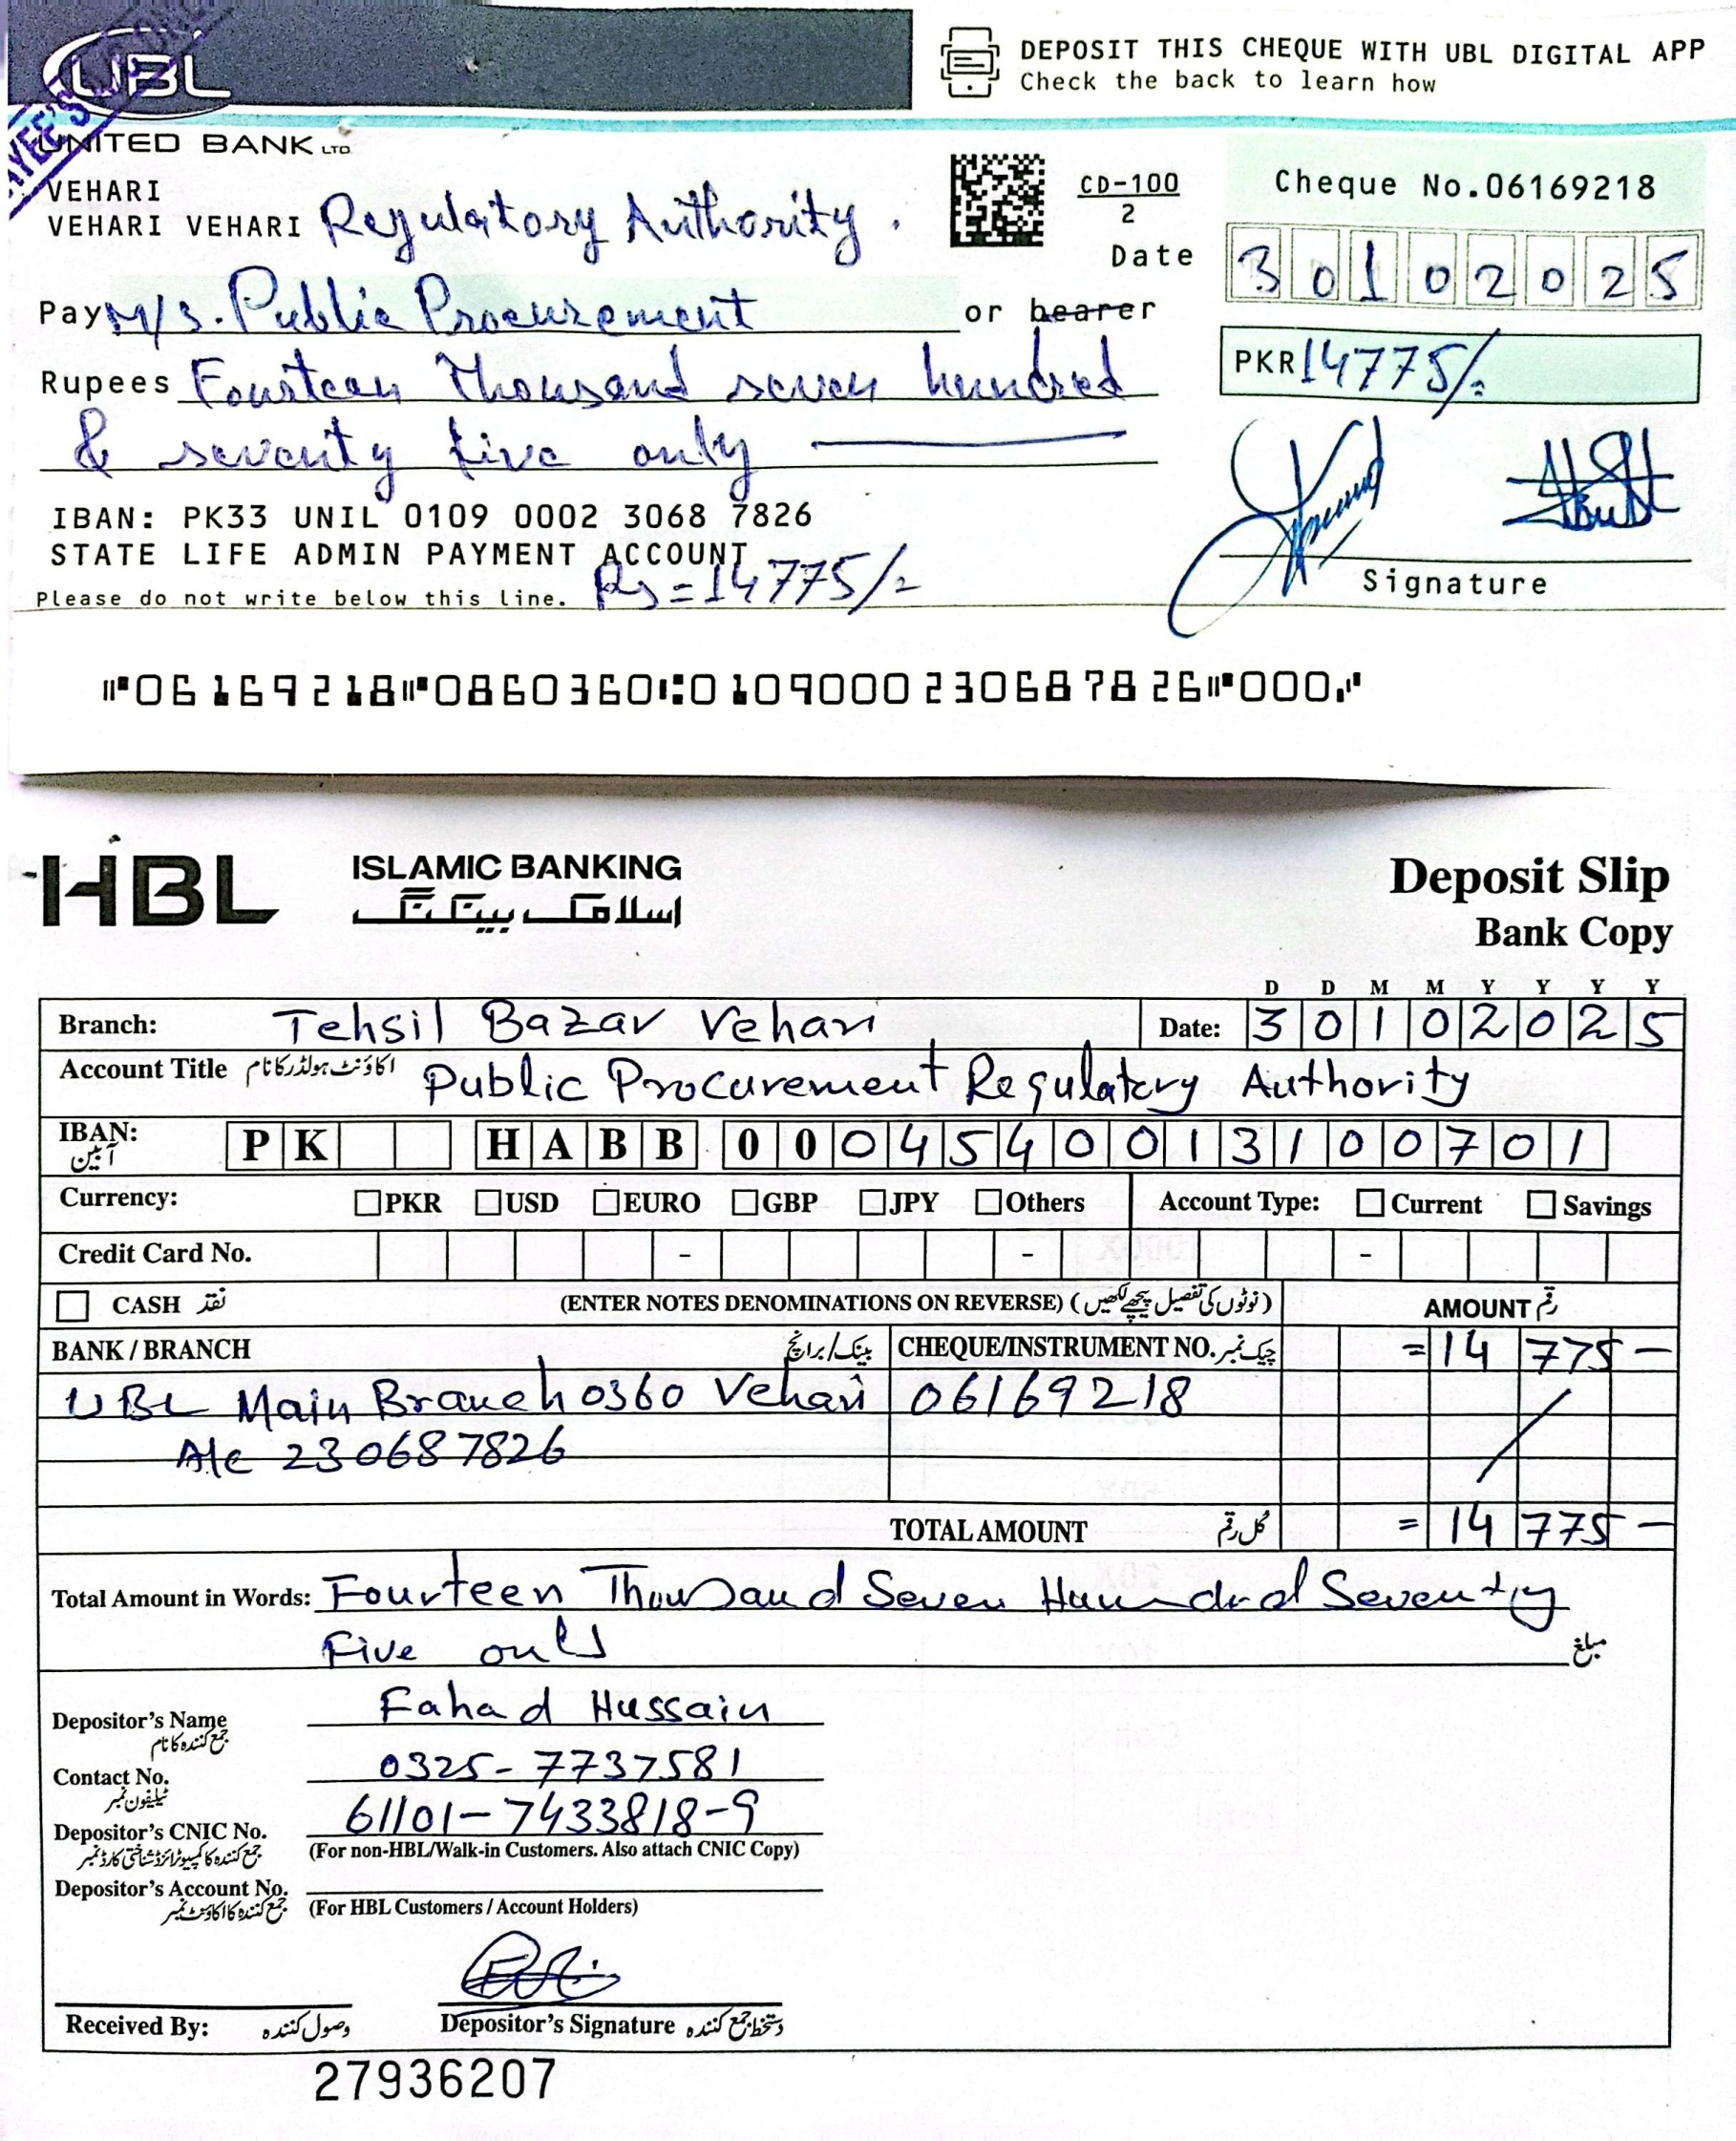 UBL
UNITED BANK LTD
DEPOSIT THIS CHEQUE WITH UBL DIGITAL APP
Check the back to learn how
VEHARI
VEHARI VEHARI Regulatory Authority.
CD-100
2
Cheque No.06169218
Date 3 0 1 0 2 0 2 5
Pay M/S. Public Procurement or bearer
Rupees Fourteen Thousand seven hundred
& seventy five only
PKR 14775/=
IBAN: PK33 UNIL 0109 0002 3068 7826
STATE LIFE ADMIN PAYMENT ACCOUNT
Rs=14775/=
Please do not write below this line.
Signature
⑈06169218⑈0860360⑆0109000230687826⑈000⑈
HBL ISLAMIC BANKING
اسلامک بینکنگ
Deposit Slip
Bank Copy
D D M M Y Y Y Y
Branch: Tehsil Bazar Vehari Date: 3 0 1 0 2 0 2 5
Account Title اکاؤنٹ ہولڈر کا نام Public Procurement Regulatory Authority
IBAN: آئبین P K H A B B 0 0 0 4 5 4 0 0 1 3 1 0 0 7 0 1
Currency: PKR USD EURO GBP JPY Others Account Type: Current Savings
Credit Card No. - - -
CASH نقد (ENTER NOTES DENOMINATIONS ON REVERSE) (نوٹوں کی تفصیل پیچھے لکھیں) AMOUNT رقم
BANK / BRANCH بینک/برانچ CHEQUE/INSTRUMENT NO. چیک نمبر = 14 775 -
UBL Main Branch 0360 Vehari 06169218
A/c 230687826
TOTAL AMOUNT کل رقم = 14 775 -
Total Amount in Words: Fourteen Thousand Seven Hundred Seventy
Five only مبلغ
Depositor's Name Fahad Hussain
جمع کنندہ کا نام
Contact No. 0325-7737581
ٹیلیفون نمبر
Depositor's CNIC No. 61101-7433818-9
جمع کنندہ کا کمپیوٹرائزڈ شناختی کارڈ نمبر (For non-HBL/Walk-in Customers. Also attach CNIC Copy)
Depositor's Account No.
جمع کنندہ کا اکاؤنٹ نمبر (For HBL Customers / Account Holders)
Received By: وصول کنندہ Depositor's Signature دستخط جمع کنندہ
27936207